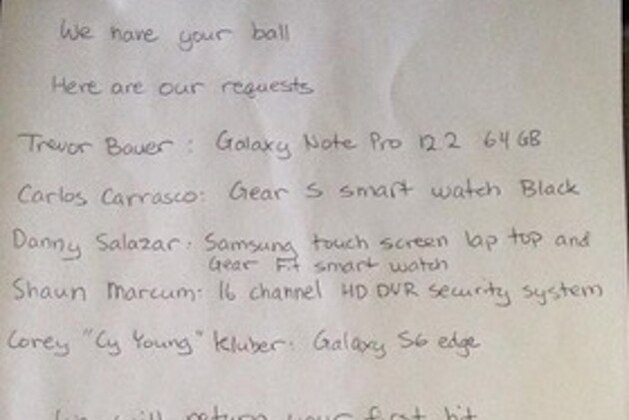 We have your ball
Here are our requests
Trevor Bauer: Galaxy Note Pro 12.2 64GB
Carlos Carrasco: Gear S smart watch Black
Danny Salazar: Samsung touch screen lap top and
Gear Fit smart watch
Shaun Marcum: 16 channel HD DVR security system
Corey "Cy Young" Kluber: Galaxy S6 edge
We will return your first hit